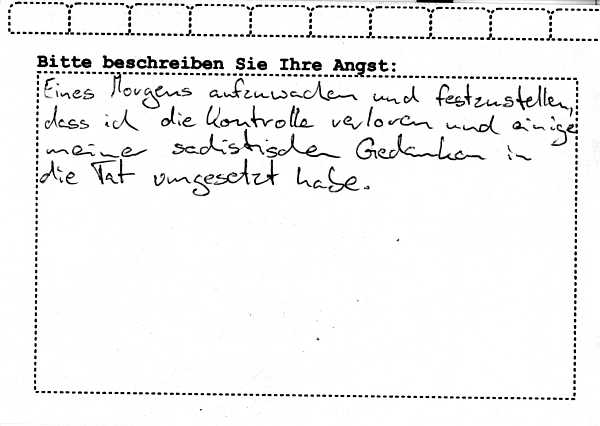 Bitte beschreiben Sie Ihre Angst:
Eines Morgens aufzuwachen und festzustellen,
dass ich die Kontrolle verloren und einige
meiner sadistischen Gedanken in
die Tat umgesetzt habe.